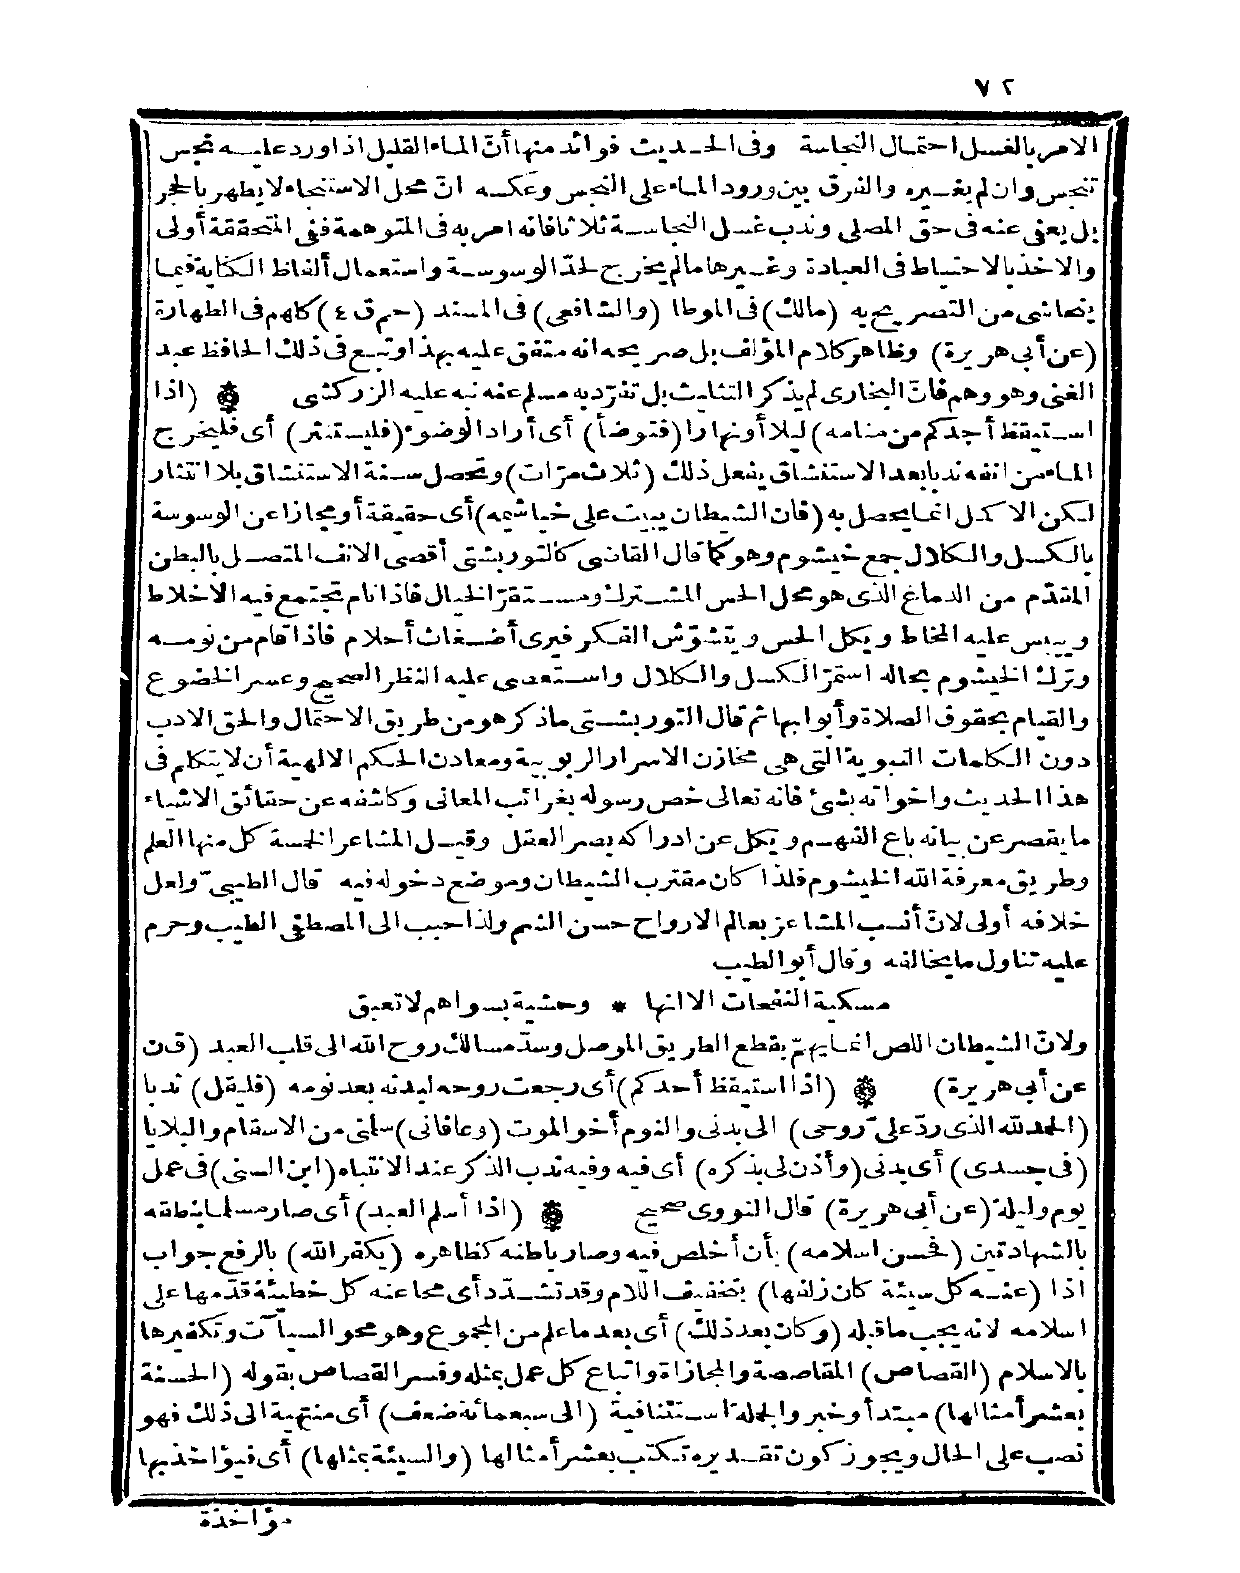 ٧٢
الامر بالغسل احتمال النجاسة وفى الحديث فوائد منها أنّ الماء القليل اذا ورد عليه نجس
تنجس وان لم يغيره والفرق بين ورود الماء على النجس وعكسه انّ محل الاستنجاء لا يطهر بالحجر
بل يعفى عنه فى حق المصلى وندب غسل النجاسة ثلاثا فانه امر به فى المتوهمة ففى المتحققة أولى
والاخذ بالاحتياط فى العبادة وغيرها مالم يخرج لحدّ الوسوسة واستعمال ألفاظ الكناية فيما
يتحاشى من التصريح به (مالك) فى الموطا (والشافعى) فى المسند (حم ق ٤) كلهم فى الطهارة
(عن أبى هريرة) وظاهر كلام المؤلف بل صريحه انه متفق عليه بهذا وتبع فى ذلك الحافظ عبد
الغنى وهو وهم فانّ البخارى لم يذكر التثليث بل تفرّد به مسلم عنه نبه عليه الزركشى ۞ (اذا
استيقظ أحدكم من منامه) ليلا أو نهارا (فتوضأ) أى أراد الوضوء (فليستنثر) أى فليخرج
الماء من انفه ندبا بعد الاستنشاق يفعل ذلك (ثلاث مرّات) وتحصل سنة الاستنشاق بلا انتثار
لكن الاكمل انما يحصل به (فان الشيطان يبيت على خياشيمه) أى حقيقة أو مجازا عن الوسوسة
بالكسل والكلال جمع خيشوم وهو كما قال القاضى كالتوربشتى أقصى الانف المتصل بالبطن
المقدّم من الدماغ الذى هو محل الحس المشترك ومستقرّ الخيال فاذا نام تجتمع فيه الاخلاط
وييبس عليه المخاط ويكل الحس ويتشوّش الفكر فيرى أضغاث أحلام فاذا قام من نومه
وترك الخيشوم بحاله استمرّ الكسل والكلال واستعصى عليه النظر الصحيح وعسر الخضوع
والقيام بحقوق الصلاة وأبوابها ثم قال التوربشتى ماذكر هو من طريق الاحتمال والحق الادب
دون الكلمات النبوية التى هى مخازن الاسرار الربوبية ومعادن الحكم الالهية أن لا يتكلم فى
هذا الحديث واخواته بشئ فانه تعالى خص رسوله بغرائب المعانى وكاشفه عن حقائق الاشياء
ما يقصر عن بيانه باع الفهم ويكل عن ادراكه بصر العقل وقيل المشاعر الخمسة كل منها العلم
وطريق معرفة الله الخيشوم فلذا كان مقترب الشيطان وموضع دخوله فيه قال الطيبىّ ولعل
خلافه أولى لانّ أنسب المشاعر بعالم الارواح حسن الشم ولذا حبب الى المصطفى الطيب وحرم
عليه تناول ما يخالفه وقال أبو الطيب
مسكية النفحات الا انها * وحشية بسواهم لا تعبق
ولانّ الشيطان اللص انما يهمّ بقطع الطريق الموصل وسدّ مسالك روح الله الى قلب العبد (ق ن
عن أبى هريرة) ۞ (اذا استيقظ أحدكم) أى رجعت روحه لبدنه بعد نومه (فليقل) ندبا
(الحمد لله الذى ردّ علىّ روحى) الى بدنى والنوم أخو الموت (وعافانى) سلمنى من الاسقام والبلايا
(فى جسدى) أى بدنى (وأذن لى بذكره) أى فيه وفيه ندب الذكر عند الانتباه (ابن السنى) فى عمل
يوم وليلة (عن أبى هريرة) قال النووى صحيح ۞ (اذا أسلم العبد) أى صار مسلما بنطقه
بالشهادتين (فحسن اسلامه) بأن أخلص فيه وصار باطنه كظاهره (يكفر الله) بالرفع جواب
اذا (عنه كل سيئة كان زلفها) بتخفيف اللام وقد تشدّد أى محا عنه كل خطيئة قدّمها على
اسلامه لانه يجب ما قبله (وكان بعد ذلك) أى بعد ما علم من المجموع وهو محو السيآت وتكفيرها
بالاسلام (القصاص) المقاصصة والمجازاة واتباع كل عمل بمثله وفسر القصاص بقوله (الحسنة
بعشر أمثالها) مبتدأ وخبر والجملة استئنافية (الى سبعمائة ضعف) أى منتهية الى ذلك فهو
نصب على الحال ويجوز كون تقديره تكتب بعشر أمثالها (والسيئة بمثلها) أى فيؤاخذ بها
مؤاخذة